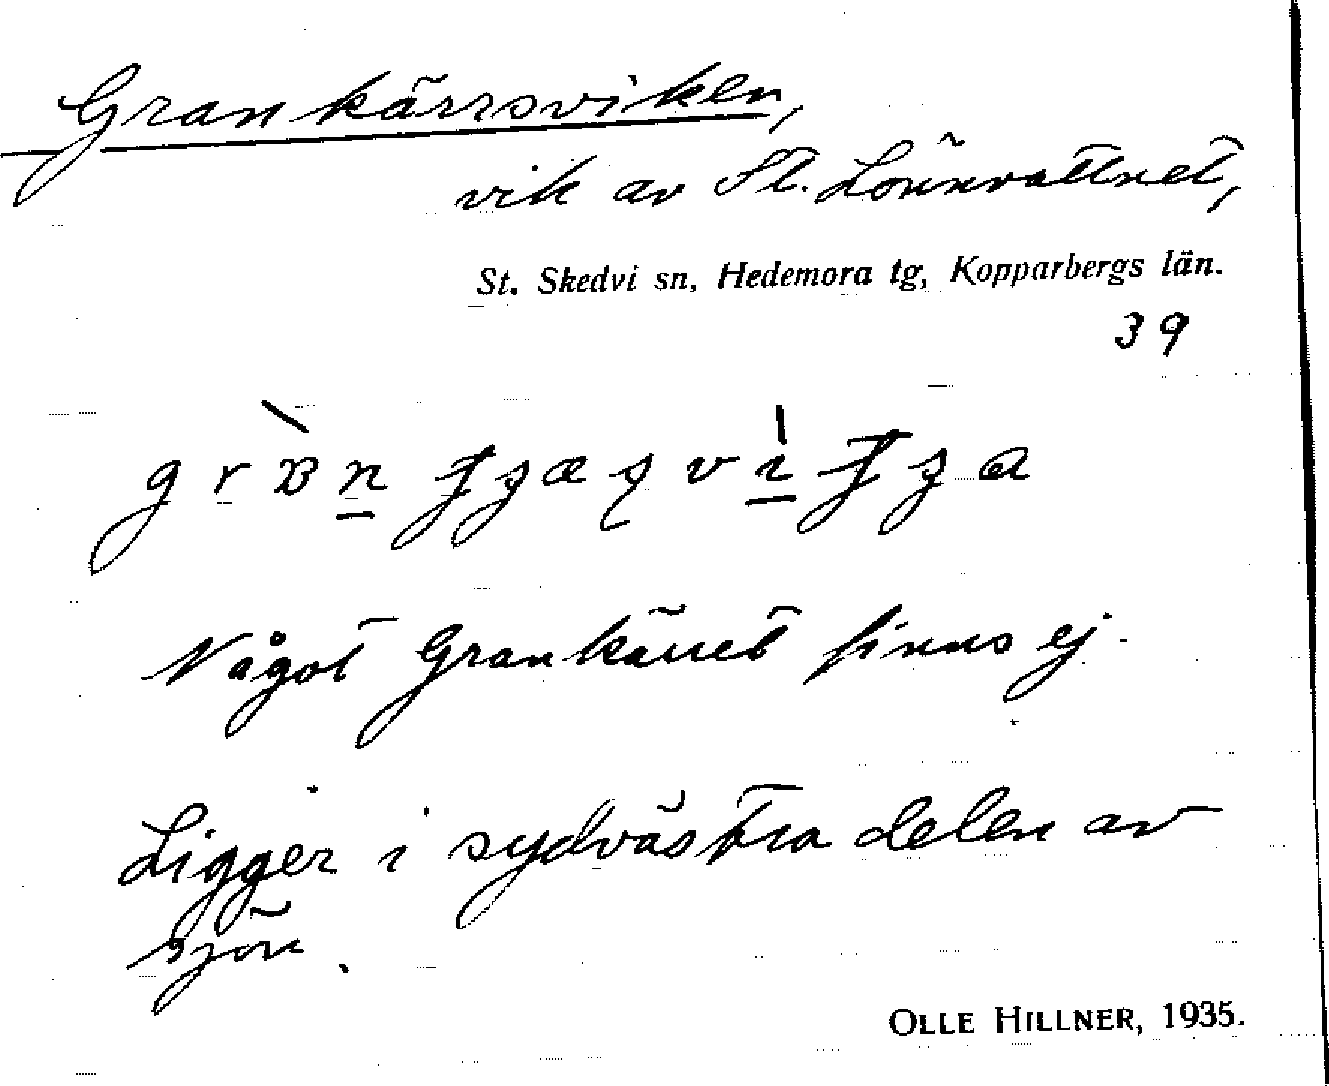 Grankärrsviken,
vik av St. Lönnvattnet,
St. Skedvi sn, Hedemora tg, Kopparbergs län.
39
Något Grankärret finns ej.
Ligger i sydvästra delen av
sjön.
OLLE HILLNER, 1935.